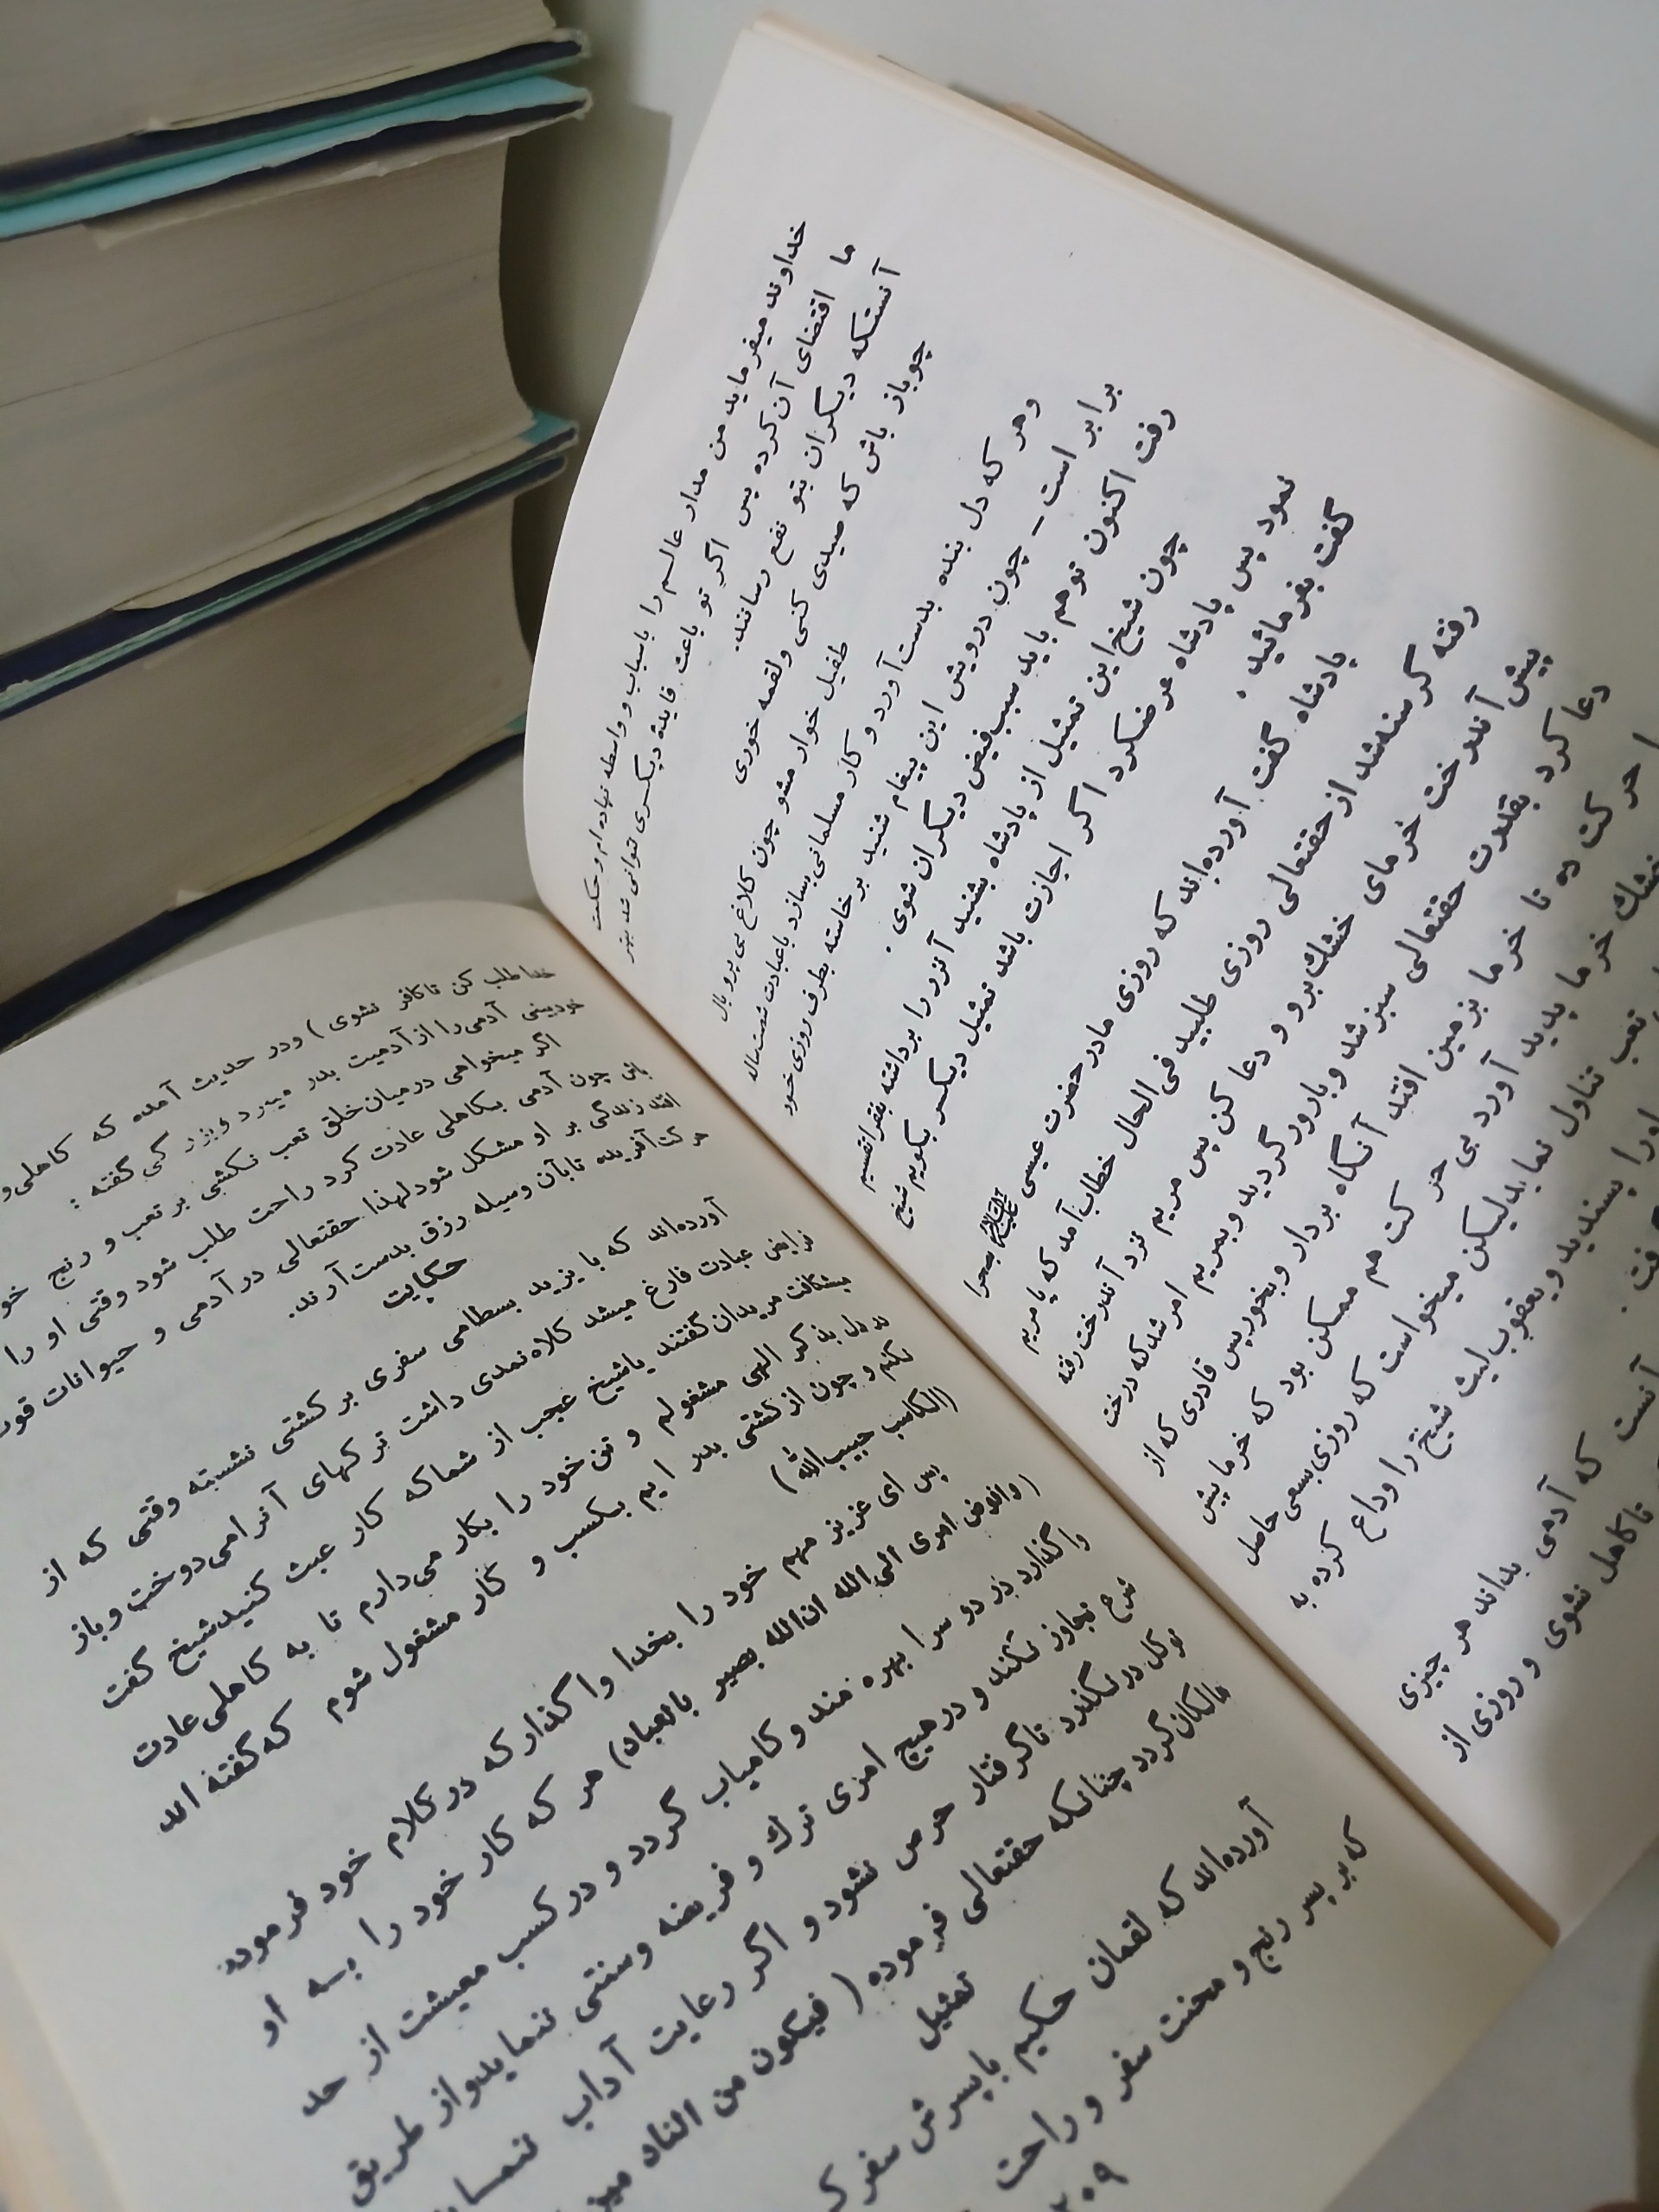 خداوند میفرماید من مدار عالم را باسباب و واسطه نهاده‌ام و حکمت
ما اقتضای آن کرده پس اگر تو باعث فایدهٔ دیگری توانی شد بهتر
آنستکه دیگران بتو نفع رسانند.
چو باز باش که صیدی کنی و لقمه خوری
طفیل خوار مشو چون کلاغ بی پر و بال
وهر که دل بنده بدست آورد و کار مسلمانی بسازد باعبادت شصت ساله
برابر است - چون درویش این پیغام شنید برخاسته بطرف روزی خود
رفت اکنون توهم باید سبب فیض دیگران شوی.
چون شیخ این تمثیل از پادشاه بشنید آنزر را برداشته بفقرا تقسیم
نمود پس پادشاه عرضکرد اگر اجازت باشد تمثیل دیگر بگویم شیخ
گفت بفرمائید.
پادشاه گفت آورده‌اند که روزی مادر حضرت عیسی علیه‌السلام بصحرا
رفته گرسنه شد از حقتعالی روزی طلبید فی الحال خطاب آمد که یا مریم
پیش آندرخت خرمای خشك برو و دعا کن پس مریم نزد آندرخت رفته
دعا کرد بقدرت حقتعالی سبز شد و بارور گردید و بمریم امر شد که درخت
را حرکت ده تا خرما بزمین افتد آنگاه بردار و بخور پس قادری که از
خشك خرما پدید آورد بی حرکت هم ممکن بود که خرما پیش
تعب تناول نماید لیکن میخواست که روزی بسعی حاصل
اورا پسندید و یعقوب لیث شیخ را وداع کرده به
آنست که آدمی بداند هر چیزی
تاکاهل نشوی و روزی از
خدا طلب کن تا کافر نشوی) ودر حدیث آمده که کاهلی و
خودبینی آدمی را از آدمیت بدر میبرد و بزرگی گفته:
اگر میخواهی درمیان خلق تعب نکشی بر تعب و رنج خو
باش چون آدمی بکاهلی عادت کرد راحت طلب شود وقتی او را
افتد زندگی بر او مشکل شود لهذا حقتعالی در آدمی و حیوانات قوت
حرکت آفریده تا بآن وسیله رزق بدست آرند.
حکایت
آورده‌اند که بایزید بسطامی سفری بر کشتی نشسته وقتی که از
فرایض عبادت فارغ میشد کلاه نمدی داشت ترکهای آنرا می‌دوخت و باز
میشکافت مریدان گفتند یا شیخ عجب از شما که کار عبث کنید شیخ گفت
دل بذکر الهی مشغولم و تن خود را بکار می‌دارم تا به کاهلی عادت
نکنم و چون از کشتی بدر ایم بکسب و کار مشغول شوم که گفته اند
(الکاسب حبیب الله)
پس ای عزیز مهم خود را بخدا واگذار که در کلام خود فرموده
(وافوض امری الی الله ان الله بصیر بالعباد) هر که کار خود را به او
واگذارد در دو سرا بهره مند و کامیاب گردد و در کسب معیشت از حد
شرع تجاوز نکند و در هیچ امری ترك و فریضه و سنتی ننماید و از طریق
توکل در نگذرد تا گرفتار حرص نشود و اگر رعایت آداب
هالکان گردد چنانکه حقتعالی فرموده (فیکون من الناد
تمثیل
آورده‌اند که لقمان حکیم با پسرش سفر
که بر پسر رنج و محنت سفر و راحت